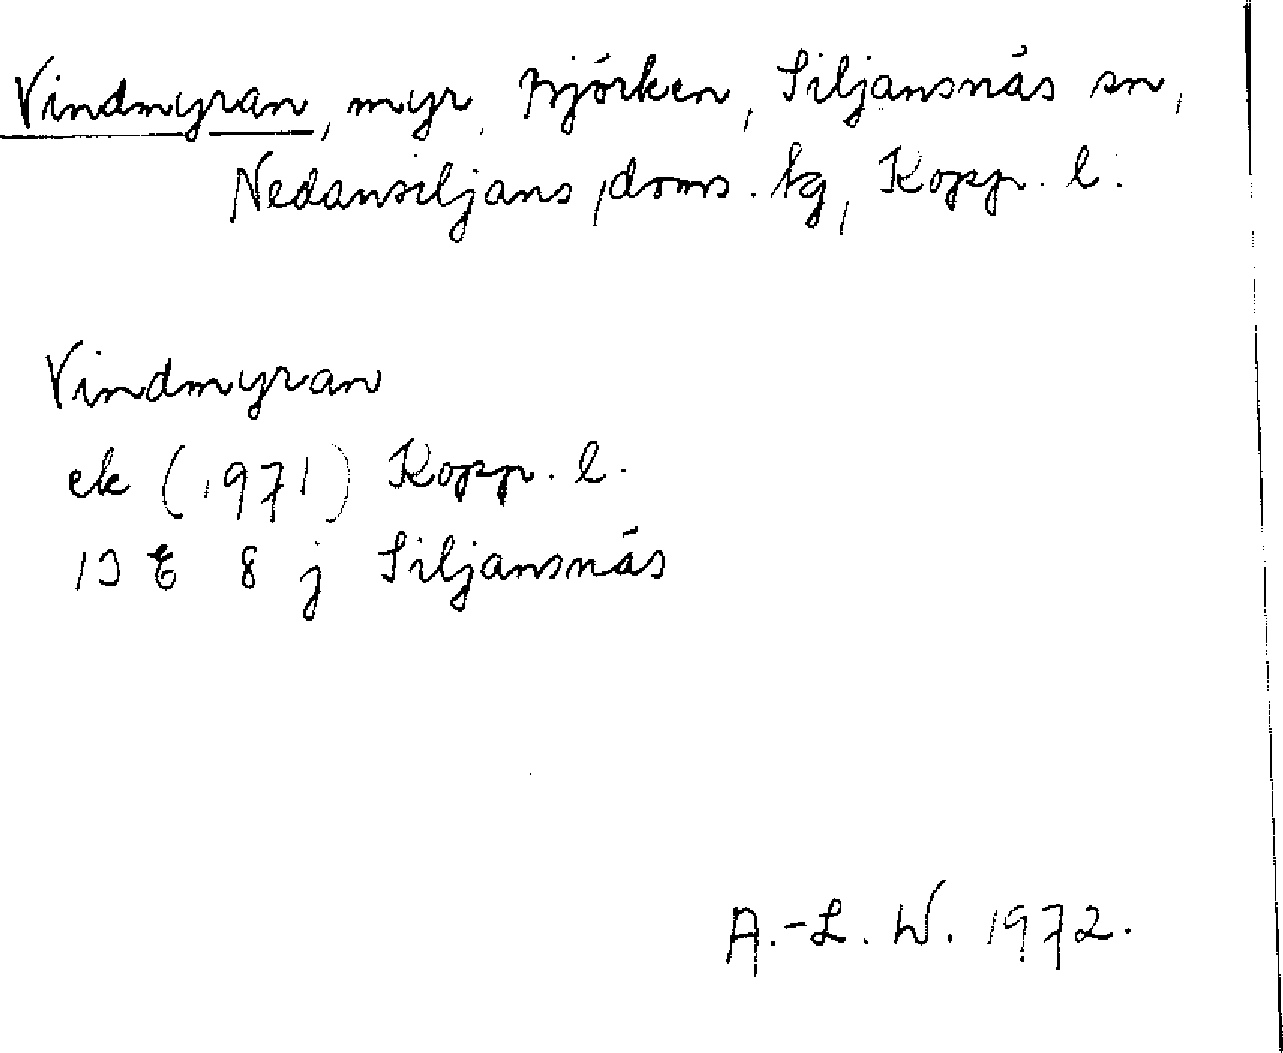 Vindmyran, myr, Björken, Siljansnäs sn,
Nedansiljans doms. tg, Kopp. l.
Vindmyran
ek (1971) Kopp. l.
13 E 8 j Siljansnäs
A.-L. W. 1972.